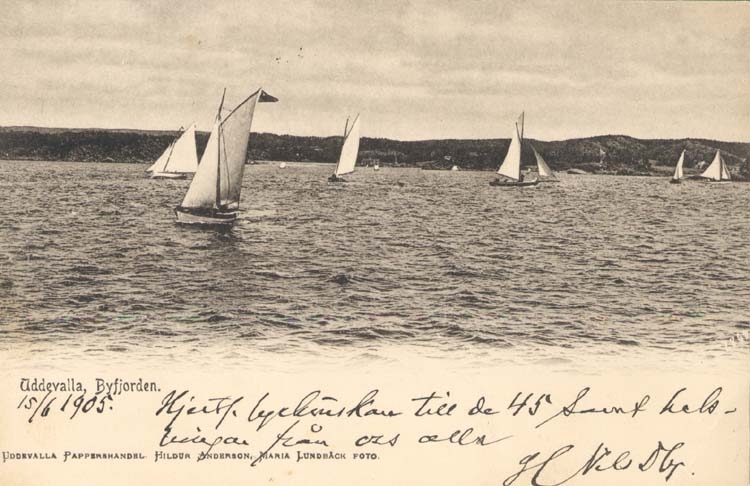 Uddevalla, Byfjorden.
15/6 1905.
Hjertl. lyckönskan till de 45 Samt hels-
ningar från oss alla
UDDEVALLA PAPPERSHANDEL. HILDUR ANDERSON, MARIA LUNDBÄCK FOTO.